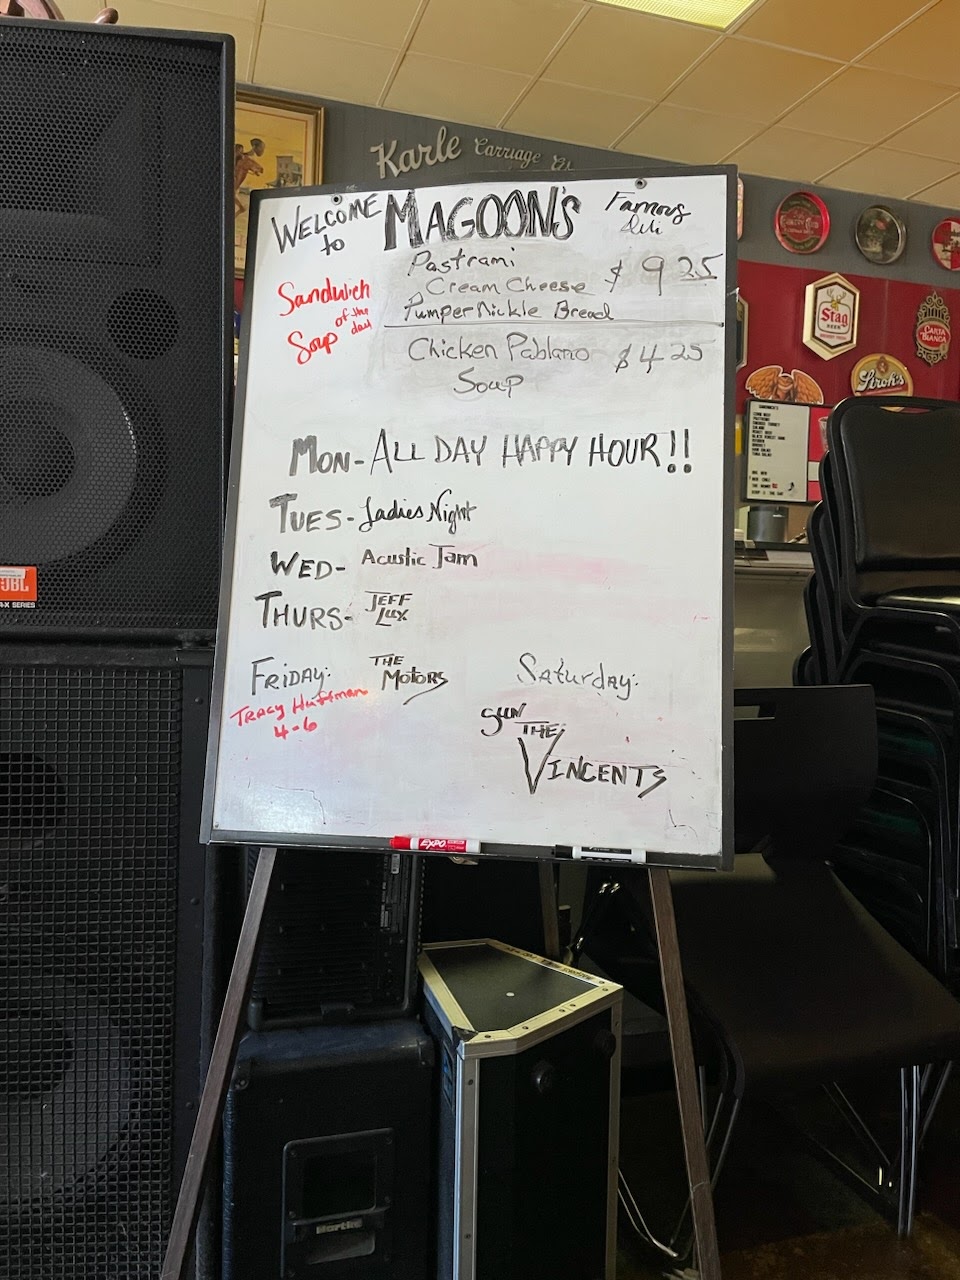 Karle Carriage
WELCOME to MAGOON'S Famous Deli
Sandwich
Soup of the day
Pastrami
Cream Cheese $ 9 25
Pumper Nickle Bread
Chicken Pablano $ 4 25
Soup
MON- ALL DAY HAPPY HOUR!!
TUES- Ladies Night
WED- Acustic Jam
THURS- JEFF LUX
FRIDAY: THE MOTORS
TRACY Huffman
4-6
SATURDAY:
SUN THE VINCENTS
EXPO
JBL
Stag
BEER
CARTA BLANCA
Stroh's
Hartke